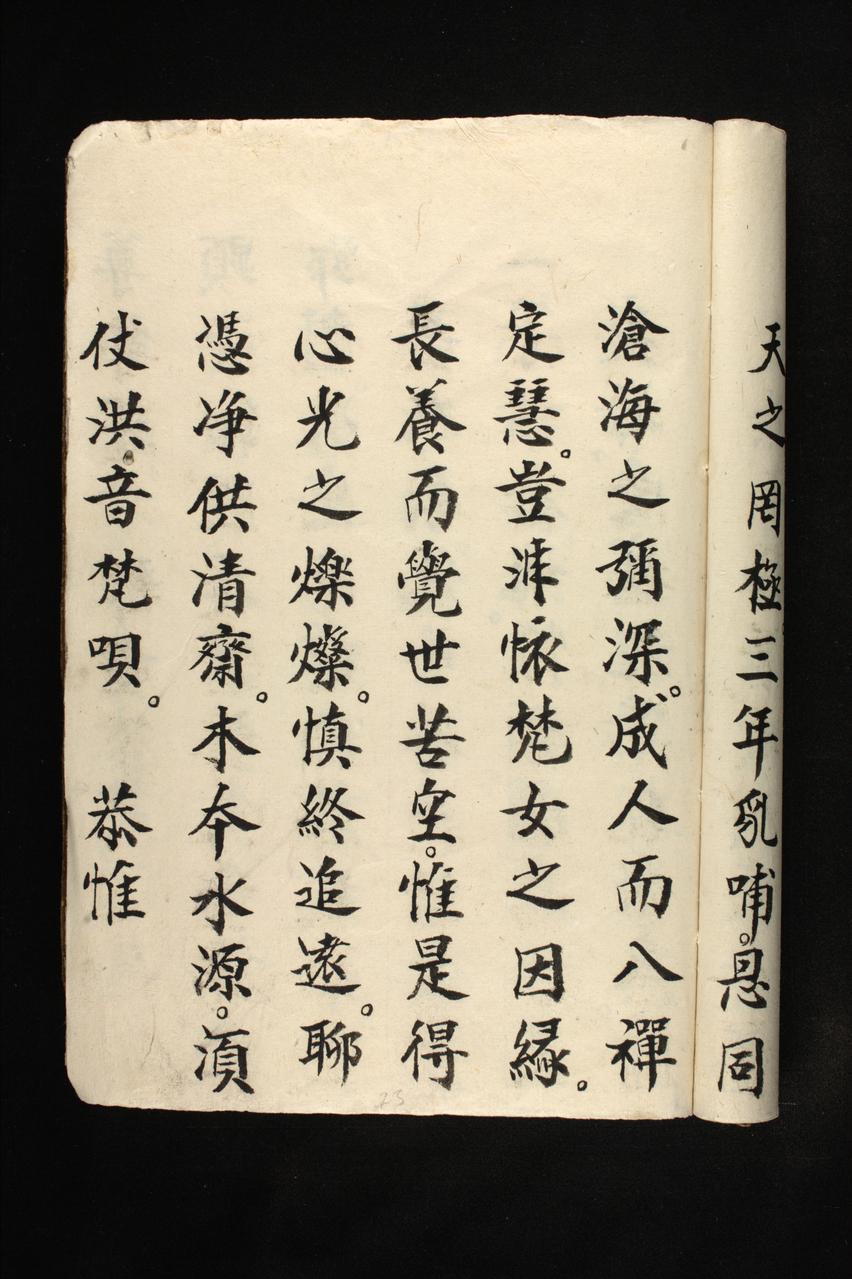 天之罔極三年乳哺。恩同
滄海之彌深。成人而八禪
定慧。豈泮懷梵女之因緣。
長養而覺世苦空。惟是得
心光之爍燦。慎終追遠。聊
憑净供清齋。木本水源。湏
仗洪音梵唄。 恭惟
23